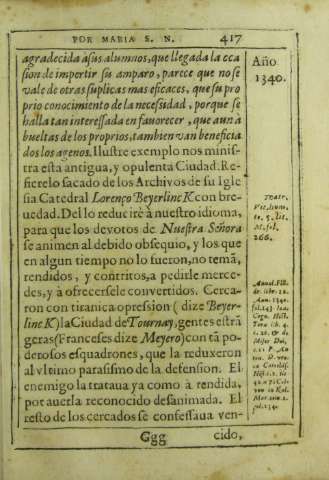 POR MARIA S. N. 417
agradecida à sus alumnos, que llegada la oca
sion de impertir su amparo, parece que no se
vale de otras suplicas mas eficaces, que su pro
prio conocimiento de la necesidad, porque se
halla tan interessada en fauorecer, que aun à
bueltas de los proprios, tambien van beneficia
dos los agenos. Ilustre exemplo nos minist
tra esta antigua, y opulenta Ciudad. Re-
fierelo sacado de los Archivos de su Igle
sia Catedral Lorenço Beyerlinc K con bre-
uedad. Del lo reducirè à nuestro idioma,
para que los devotos de Nuestra Señora
se animen al debido obsequio, y los que
en algun tiempo no lo fueron, no temã,
rendidos, y contritos, a pedirle merce-
des, y à ofrecersele convertidos. Cerca-
ron con tiranica opression (dize Beyer-
linc K) la Ciudad de Tournay, gentes estrã
geras (Franceses dize Meyero) con tã po-
derosos esquadrones, que la reduxeron
al vltimo parasismo de la defension. El
enemigo la trataua ya como à rendida,
por auerla reconocido desanimada. El
resto de los cercados se confessaua ven-
Ggg cido,
Año
1340.
Teatr.
Vit. hum.
to. 5. lit.
M. fol.
266.
Annal. Flã